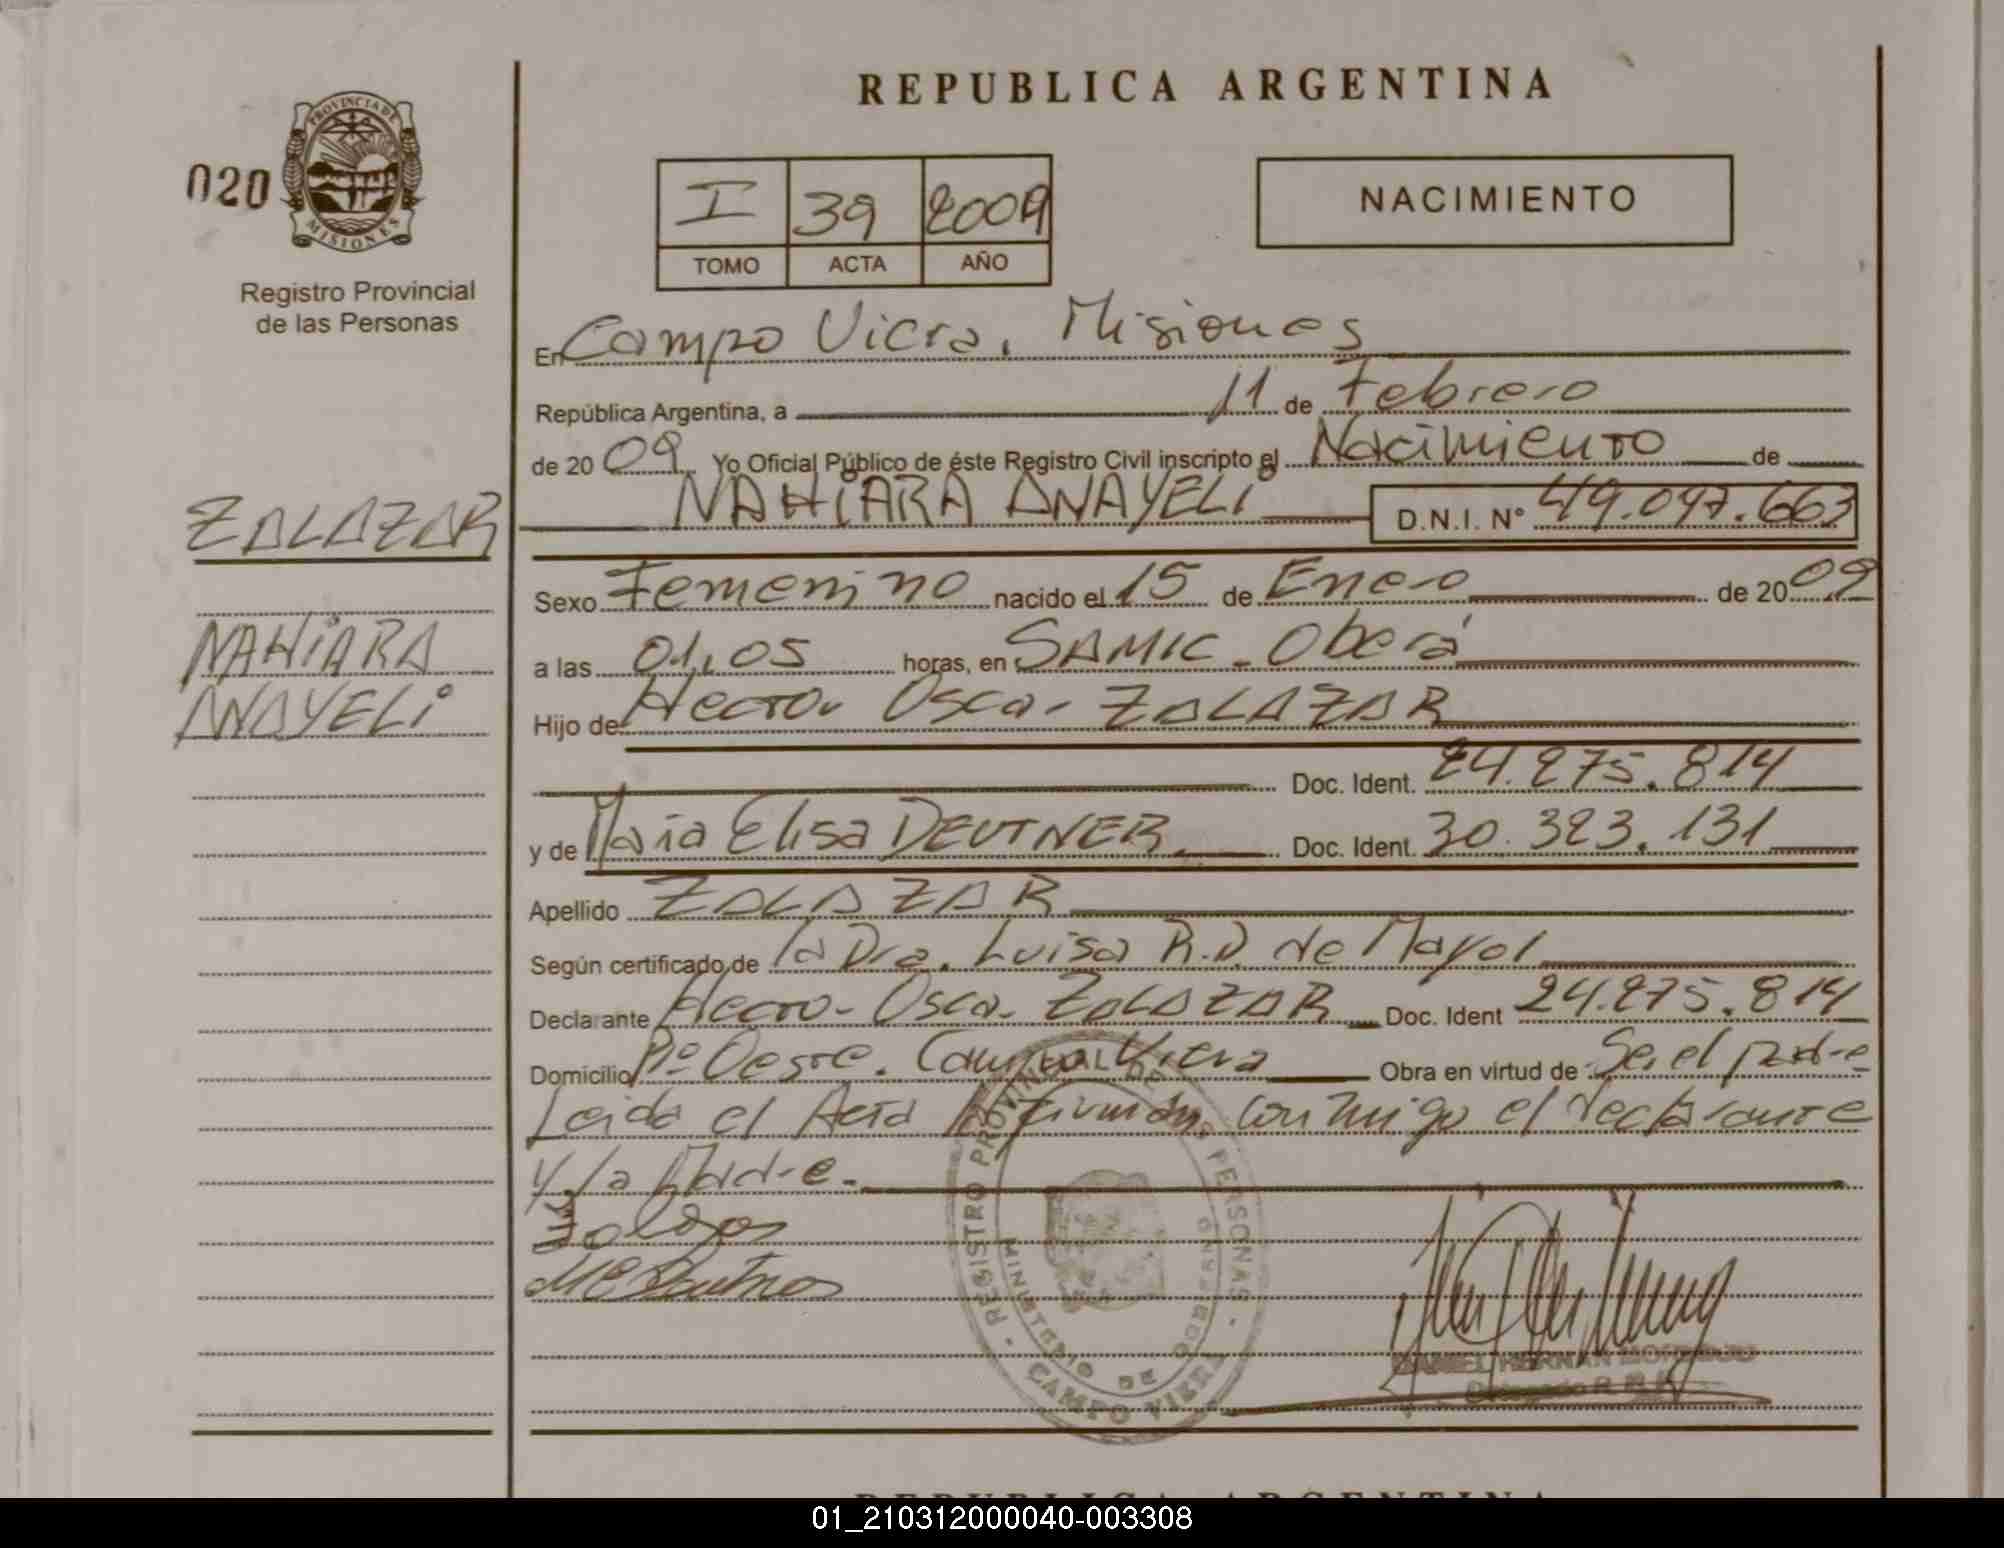 REPUBLICA ARGENTINA
PROVINCIA DE
MISIONES
020
Registro Provincial
de las Personas
I 39 2009
TOMO ACTA AÑO
NACIMIENTO
En Campo Viera. Misiones
República Argentina, a 11 de Febrero
de 20 09 Yo Oficial Público de éste Registro Civil inscripto el Nacimiento de
NAHIARA ANAYELI D.N.I. N° 49.097.663
ZALAZAR
NAHIARA
ANAYELI
Sexo Femenino nacido el 15 de Enero de 20 09
a las 01,05 horas, en SAMIC - Oberá
Hijo de Hector Oscar ZALAZAR
Doc. Ident. 24.275.814
y de Maria Elisa DEUTNER Doc. Ident. 30.323.131
Apellido ZALAZAR
Según certificado de la Dra. Luisa R.D. de Mayol
Declarante Hector Oscar ZALAZAR Doc. Ident 24.275.814
Domicilio Bº Oeste. Campo Viera Obra en virtud de Ser el padre
Leida el Acta la firman conmigo el declarante
y la Madre.
REGISTRO PROVINCIAL DE LAS PERSONAS
MINISTERIO DE GOBIERNO
CAMPO VIERA
DANIEL HERNAN
Delegado R.P.P.
REPUBLICA ARGENTINA
01_210312000040-003308